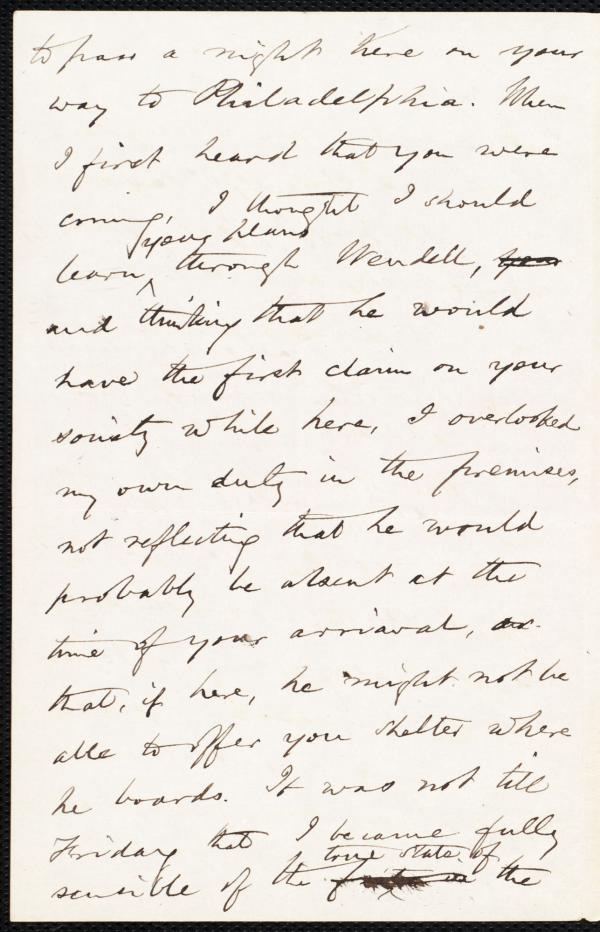 to pass a night here on your
way to Philadelphia. When
I first heard that you were
coming, I thought I should
your plans
learn, through Wendell,
and thinking that he would
have the first claim on your
society while here, I overlooked
my own duty in the premises,
not reflecting that he would
probably be absent at the
time of your arriaval, or
that, if here, he might not be
able to offer you shelter where
he boards. It was not till
Friday that I became fully
true state of
sensible of the the